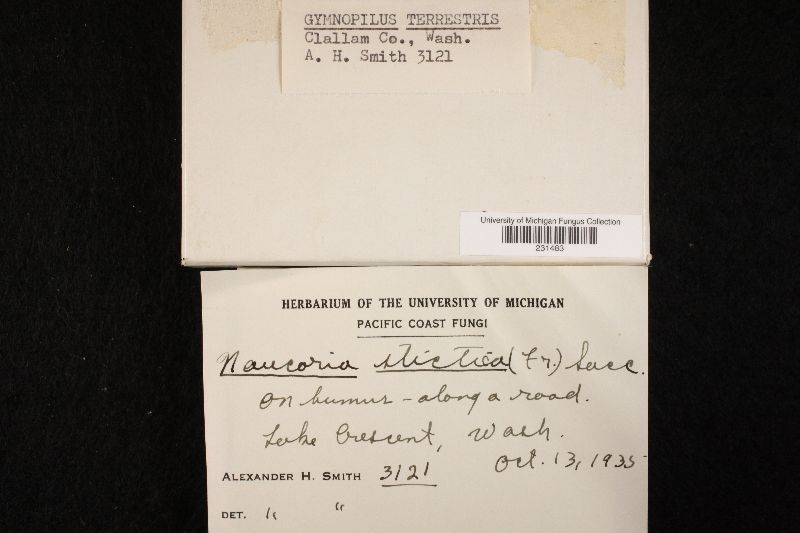 GYMNOPILUS TERRESTRIS
Clallam Co., Wash.
A. H. Smith 3121
University of Michigan Fungus Collection
231483
HERBARIUM OF THE UNIVERSITY OF MICHIGAN
PACIFIC COAST FUNGI
Naucoria stictica (Fr.) Sacc.
On humus - along a road.
Lake Crescent, Wash.
ALEXANDER H. SMITH 3121 Oct. 13, 1935
DET. " "